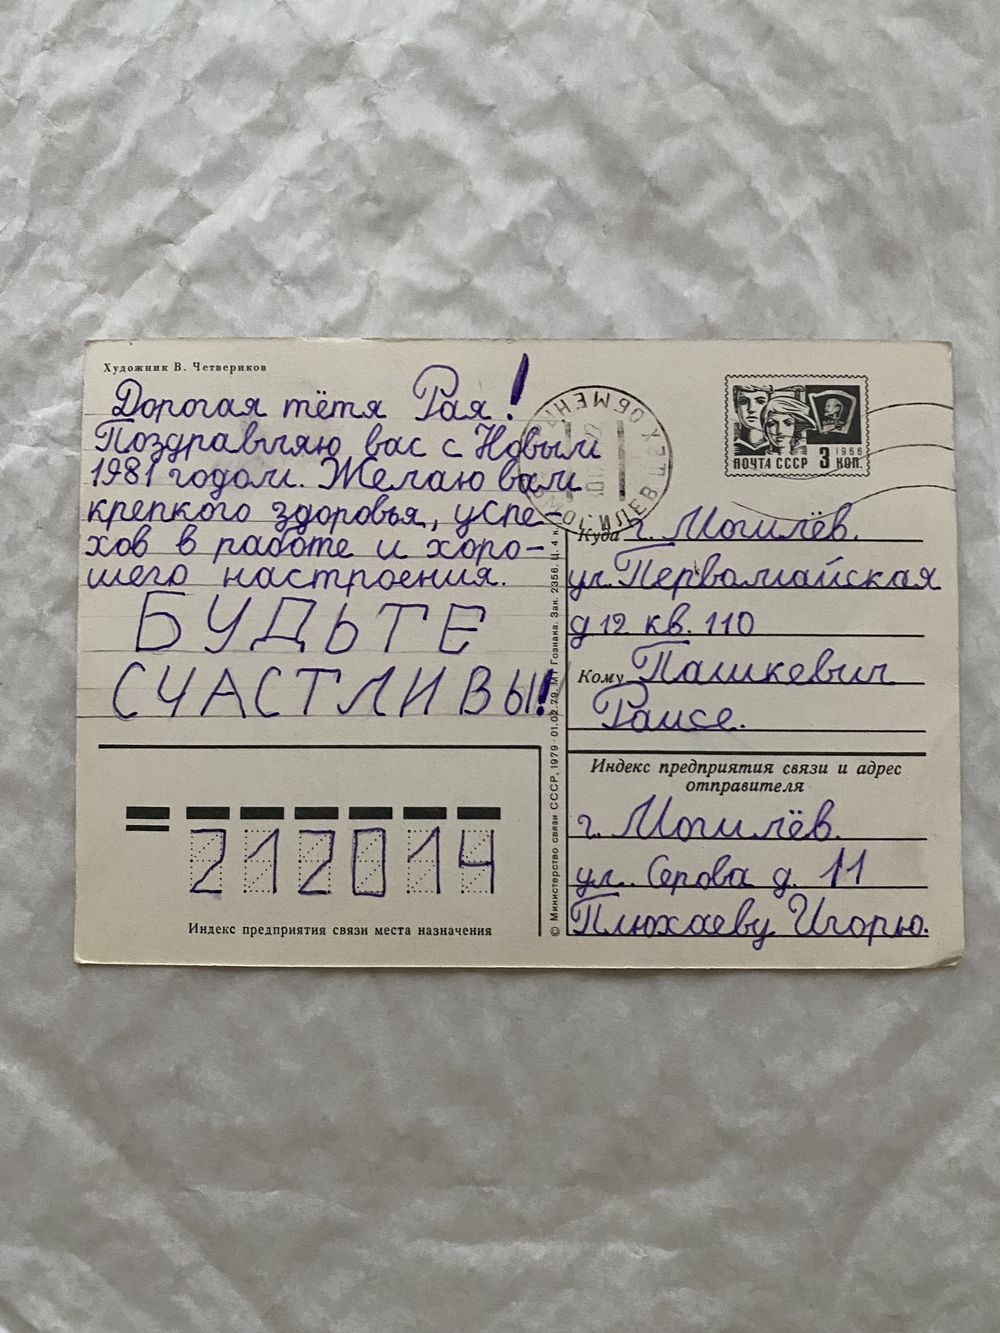 Художник В. Четвериков
Дорогая тётя Рая!
Поздравляю вас с Новым
1981 годом. Желаю вам
крепкого здоровья, успе-
хов в работе и хоро-
шего настроения.
БУДЬТЕ
СЧАСТЛИВЫ!
ПОЧТА СССР 3 КОП.
1966
Куда г. Могилёв.
ул. Первомайская
д 12 кв. 110
Кому Пашкевич
Раисе.
Индекс предприятия связи и адрес
отправителя
г. Могилёв.
ул. Серова д. 11
Плюхаеву Игорю.
© Министерство связи СССР, 1979 · 01.02.79. МТ Гознака. Зак. 2356. Ц. 4 к.
212014
Индекс предприятия связи места назначения